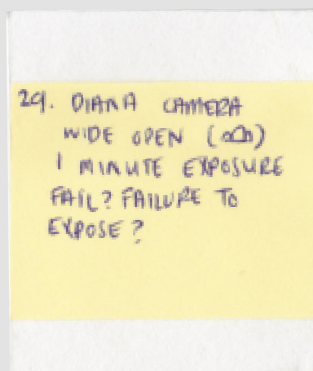 29. DIANA CAMERA
WIDE OPEN ()
1 MINUTE EXPOSURE
FAIL? FAILURE TO
EXPOSE?